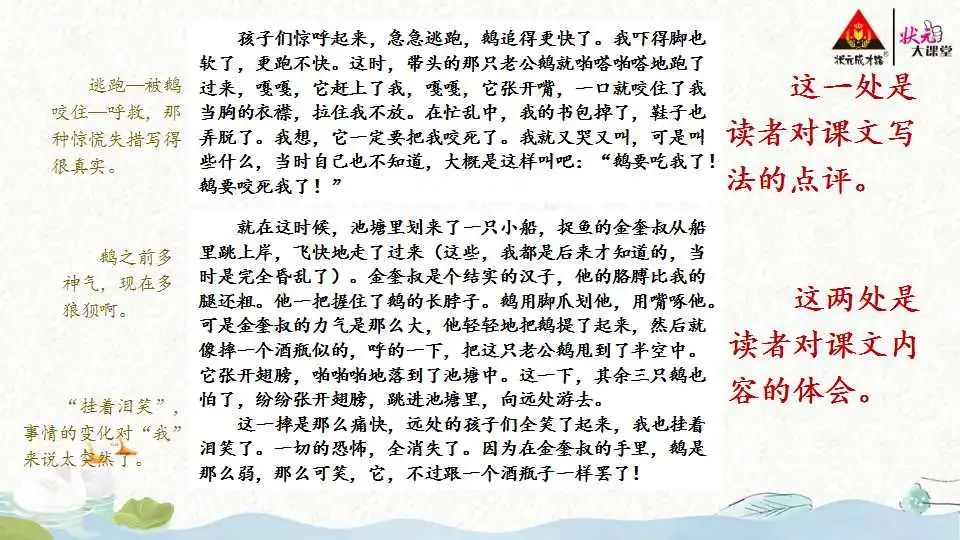 孩子们惊呼起来，急急逃跑，鹅追得更快了。我吓得脚也
软了，更跑不快。这时，带头的那只老公鹅就啪嗒啪嗒地跑了
过来，嘎嘎，它赶上了我，嘎嘎，它张开嘴，一口就咬住了我
当胸的衣襟，拉住我不放。在忙乱中，我的书包掉了，鞋子也
弄脱了。我想，它一定要把我咬死了。我就又哭又叫，可是叫
些什么，当时自己也不知道，大概是这样叫吧：“鹅要吃我了！
鹅要咬死我了！”
逃跑—被鹅
咬住—呼救，那
种惊慌失措写得
很真实。
这一处是
读者对课文写
法的点评。
就在这时候，池塘里划来了一只小船，捉鱼的金奎叔从船
里跳上岸，飞快地走了过来（这些，我都是后来才知道的，当
时是完全昏乱了）。金奎叔是个结实的汉子，他的胳膊比我的
腿还粗。他一把握住了鹅的长脖子。鹅用脚爪划他，用嘴啄他。
可是金奎叔的力气是那么大，他轻轻地把鹅提了起来，然后就
像摔一个酒瓶似的，呼的一下，把这只老公鹅甩到了半空中。
它张开翅膀，啪啪啪地落到了池塘中。这一下，其余三只鹅也
怕了，纷纷张开翅膀，跳进池塘里，向远处游去。
这一摔是那么痛快，远处的孩子们全笑了起来，我也挂着
泪笑了。一切的恐怖，全消失了。因为在金奎叔的手里，鹅是
那么弱，那么可笑，它，不过跟一个酒瓶子一样罢了！
鹅之前多
神气，现在多
狼狈啊。
“挂着泪笑”，
事情的变化对“我”
来说太突然了。
这两处是
读者对课文内
容的体会。
状元成才路
状元
大课堂